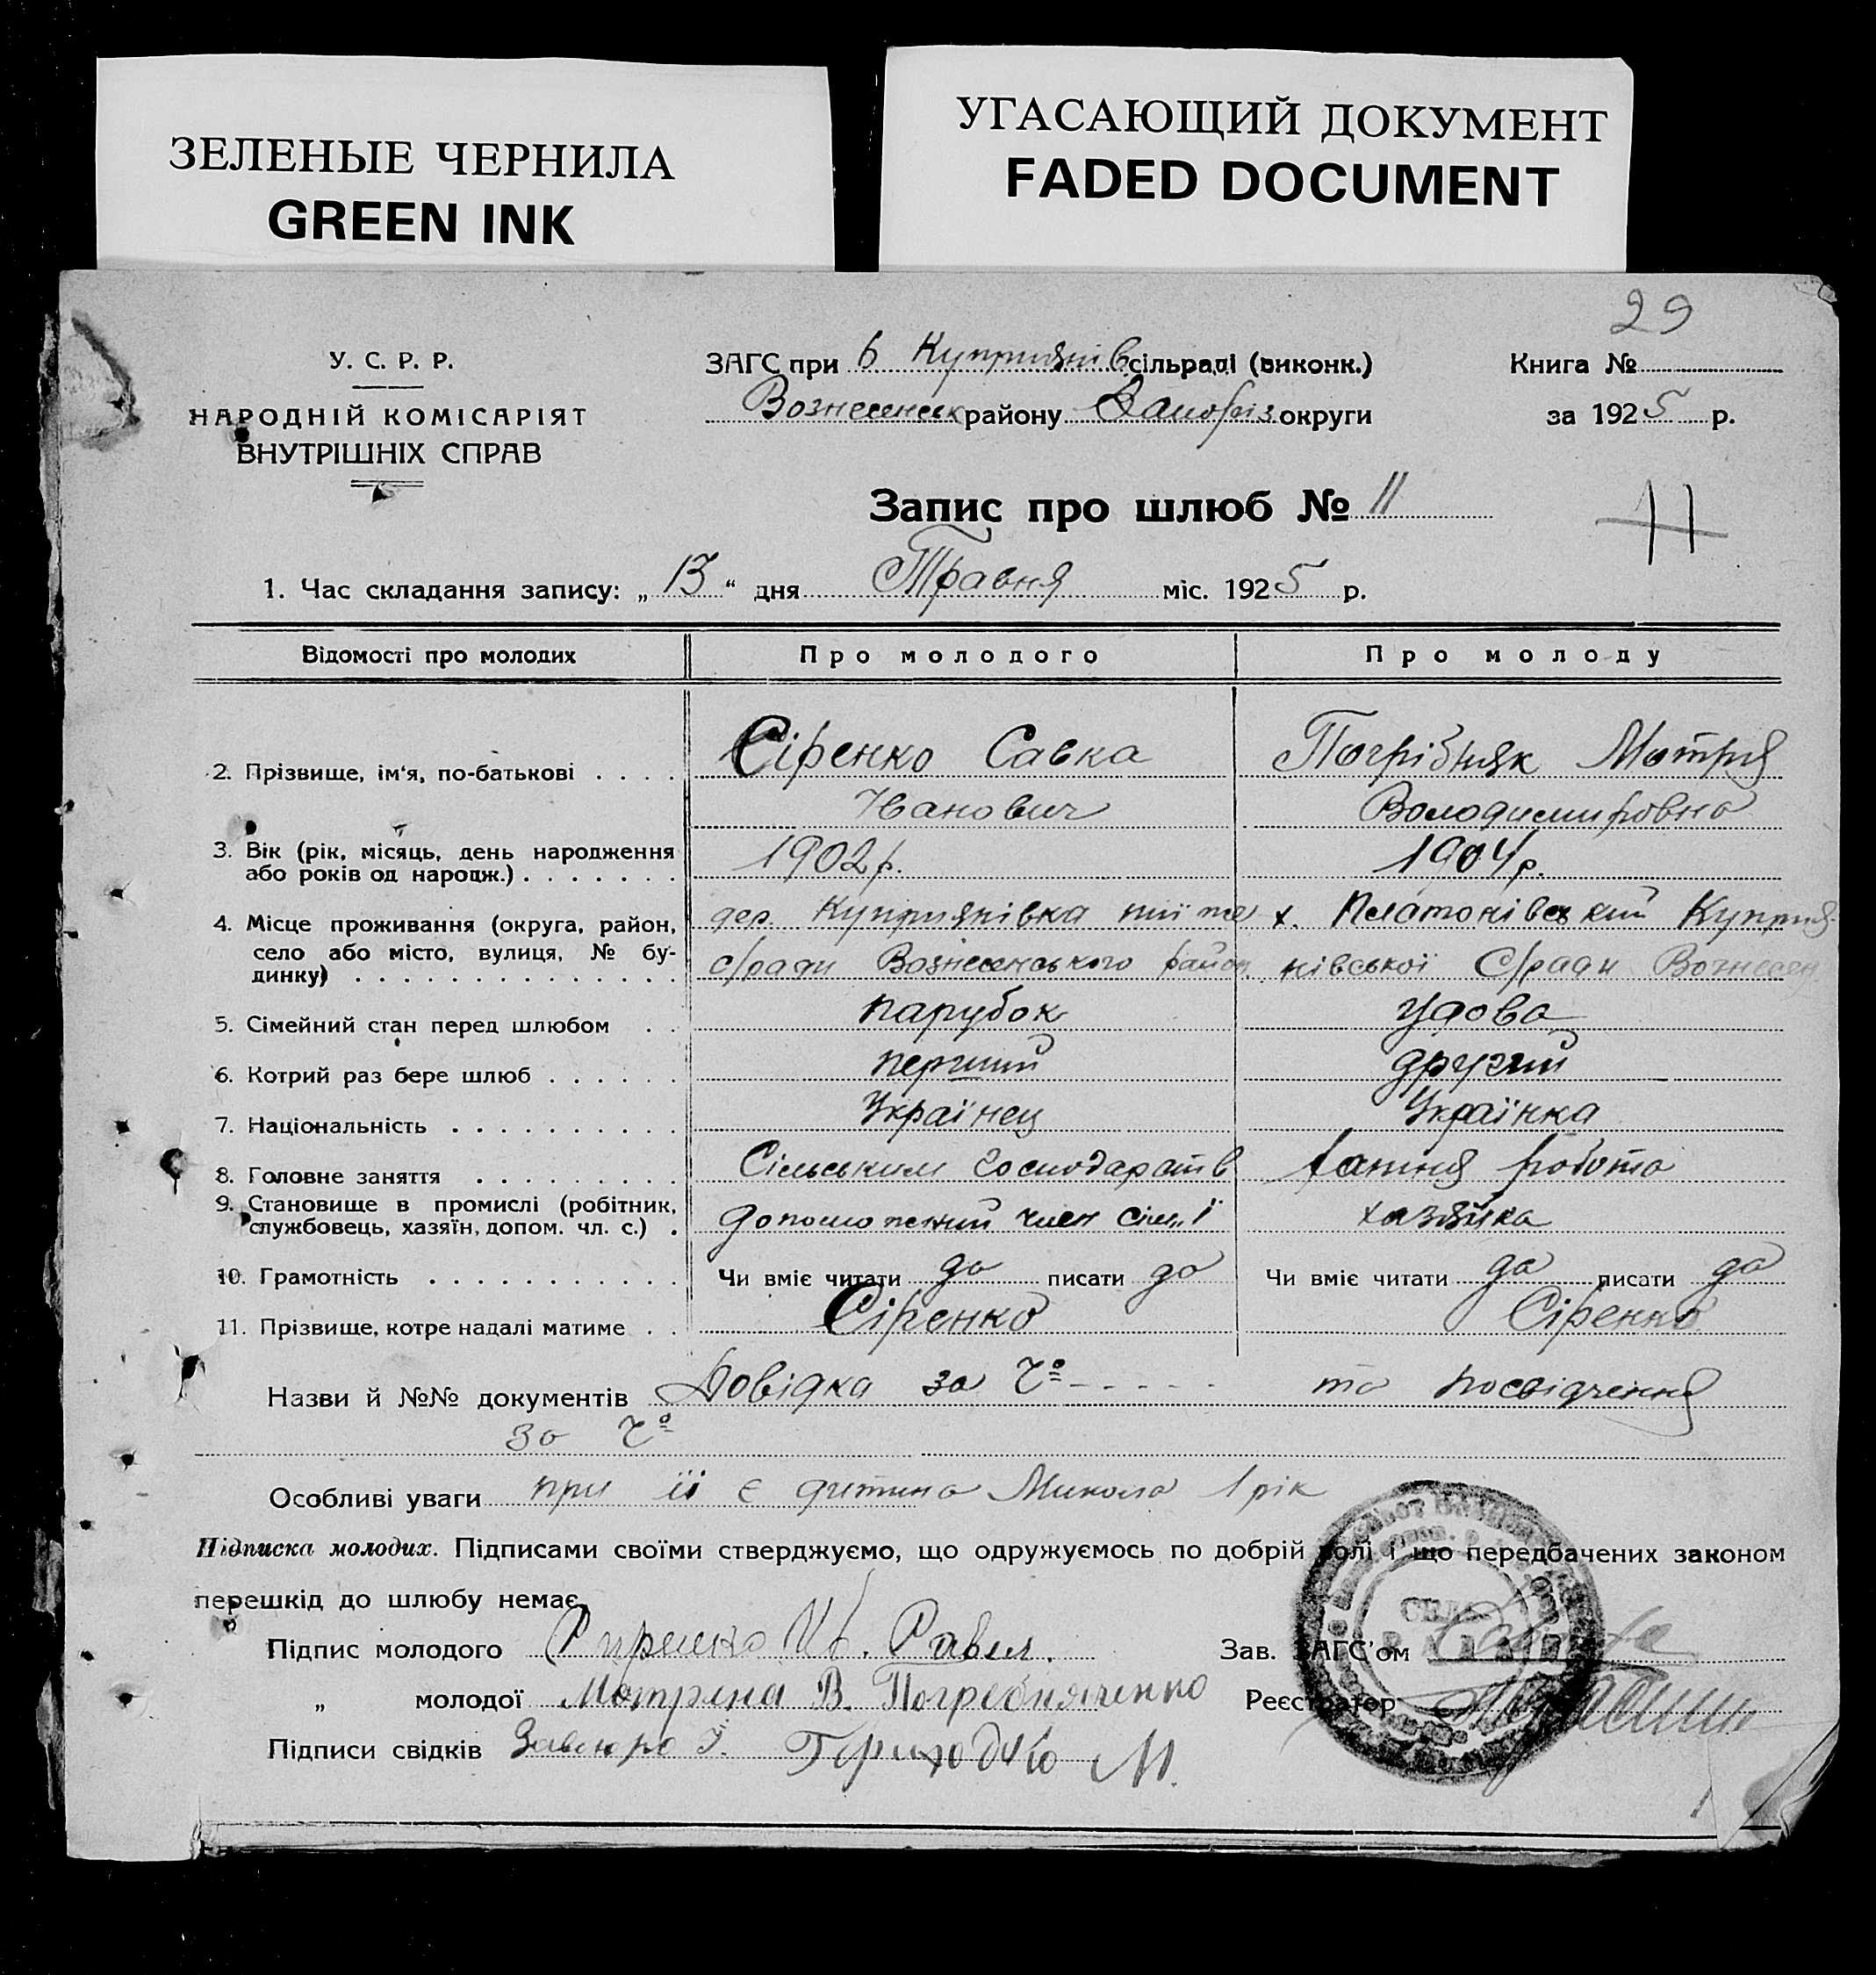 ЗЕЛЕНЫЕ ЧЕРНИЛА
GREEN INK
УГАСАЮЩИЙ ДОКУМЕНТ
FADED DOCUMENT
29
У. С. Р. Р.
НАРОДНІЙ КОМІСАРІЯТ
ВНУТРІШНІХ СПРАВ
ЗАГС при Куприянів сільраді (виконк.)
Вознесенськ району Запоріз округи
Книга №
за 1925 р.
Запис про шлюб № 11
11
1. Час складання запису: „13“ дня Травня міс. 1925 р.
Відомості про молодих Про молодого Про молоду
2. Прізвище, ім'я, по-батькові . . . . Сіренко Савка Погрібняк Мотря
Іванович Володимировна
3. Вік (рік, місяць, день народження 1902 р. 1904 р.
або років од народж.) . . . . . . .
4. Місце проживання (округа, район, дер. Куприянівка тиї же х. Платонівський Куприя-
село або місто, вулиця, № бу- с/ради Вознесенського район. нівської С/ради Вознесен
динку) . . . . . . . . . . . . . .
5. Сімейний стан перед шлюбом . . парубок удова
6. Котрий раз бере шлюб . . . . . . перший другий
7. Національність . . . . . . . . . . Українец Українка
8. Головне заняття . . . . . . . . . Сільським господарств хатння робота
9. Становище в промислі (робітник,
службовець, хазяїн, допом. чл. с.) . допоможений член сім'ї хазяйка
10. Грамотність . . . . . . . . . . . Чи вміє читати да писати да Чи вміє читати да писати да
11. Прізвище, котре надалі матиме . . Сіренко Сіренко
Назви й №№ документів Довідка за Чº - - - - - та посвідчення
за Чº
Особливі уваги при їй є дитина Микола 1 рік
Підписка молодих. Підписами своїми стверджуємо, що одружуємось по добрій волі і що передбачених законом
перешкід до шлюбу немає.
Підпис молодого Сиренко Ив. Савел. Зав. ЗАГС'ом
„ молодої Мотрина В. Погребняченко Реєстратор
Підписи свідків М.